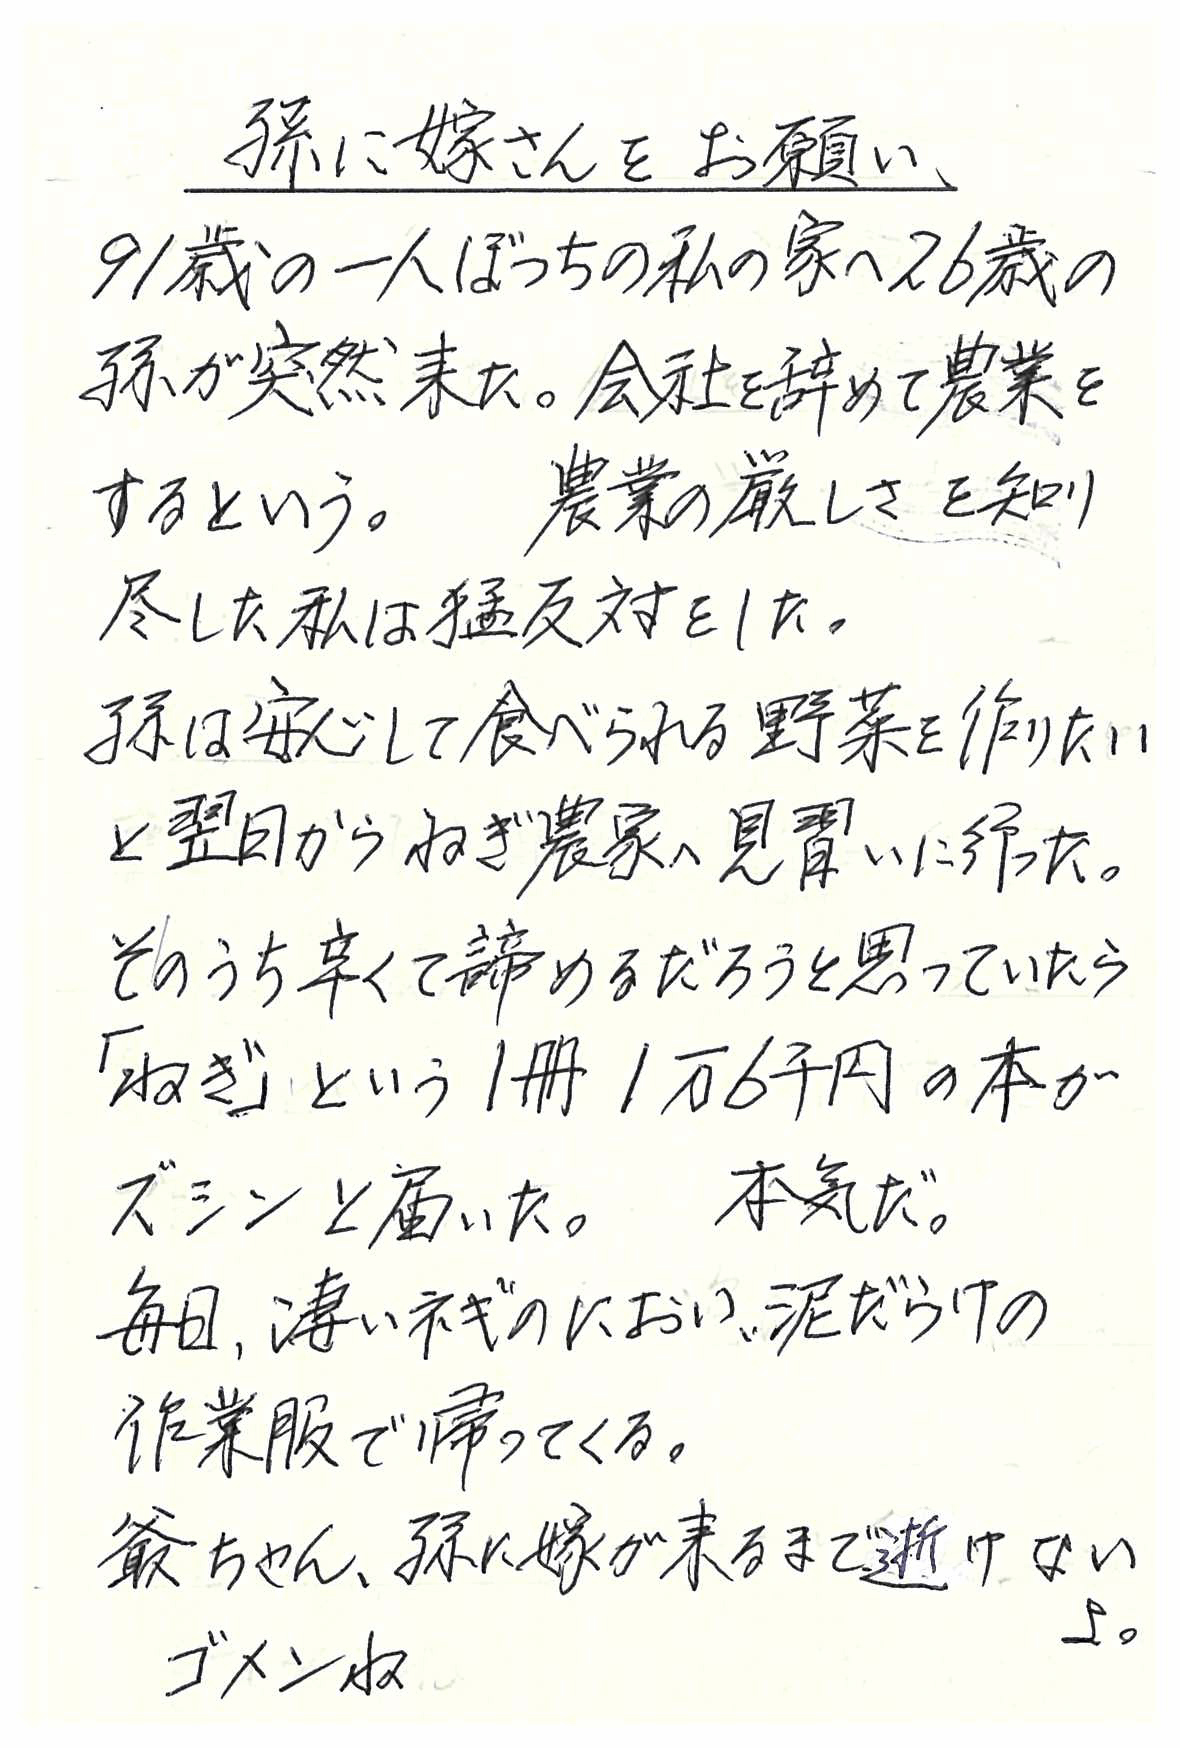 孫に嫁さんをお願い
91歳の一人ぼっちの私の家へ26歳の
孫が突然来た。会社を辞めて農業を
するという。 農業の厳しさを知り
尽した私は猛反対をした。
孫は安心して食べられる野菜を作りたい
と翌日からねぎ農家へ見習いに行った。
そのうち辛くて諦めるだろうと思っていたら
「ねぎ」という1冊1万6千円の本が
ズシンと届いた。 本気だ。
毎日、凄いネギのにおい、泥だらけの
作業服で帰ってくる。
爺ちゃん、孫に嫁が来るまで逝けない
よ。
ゴメンね